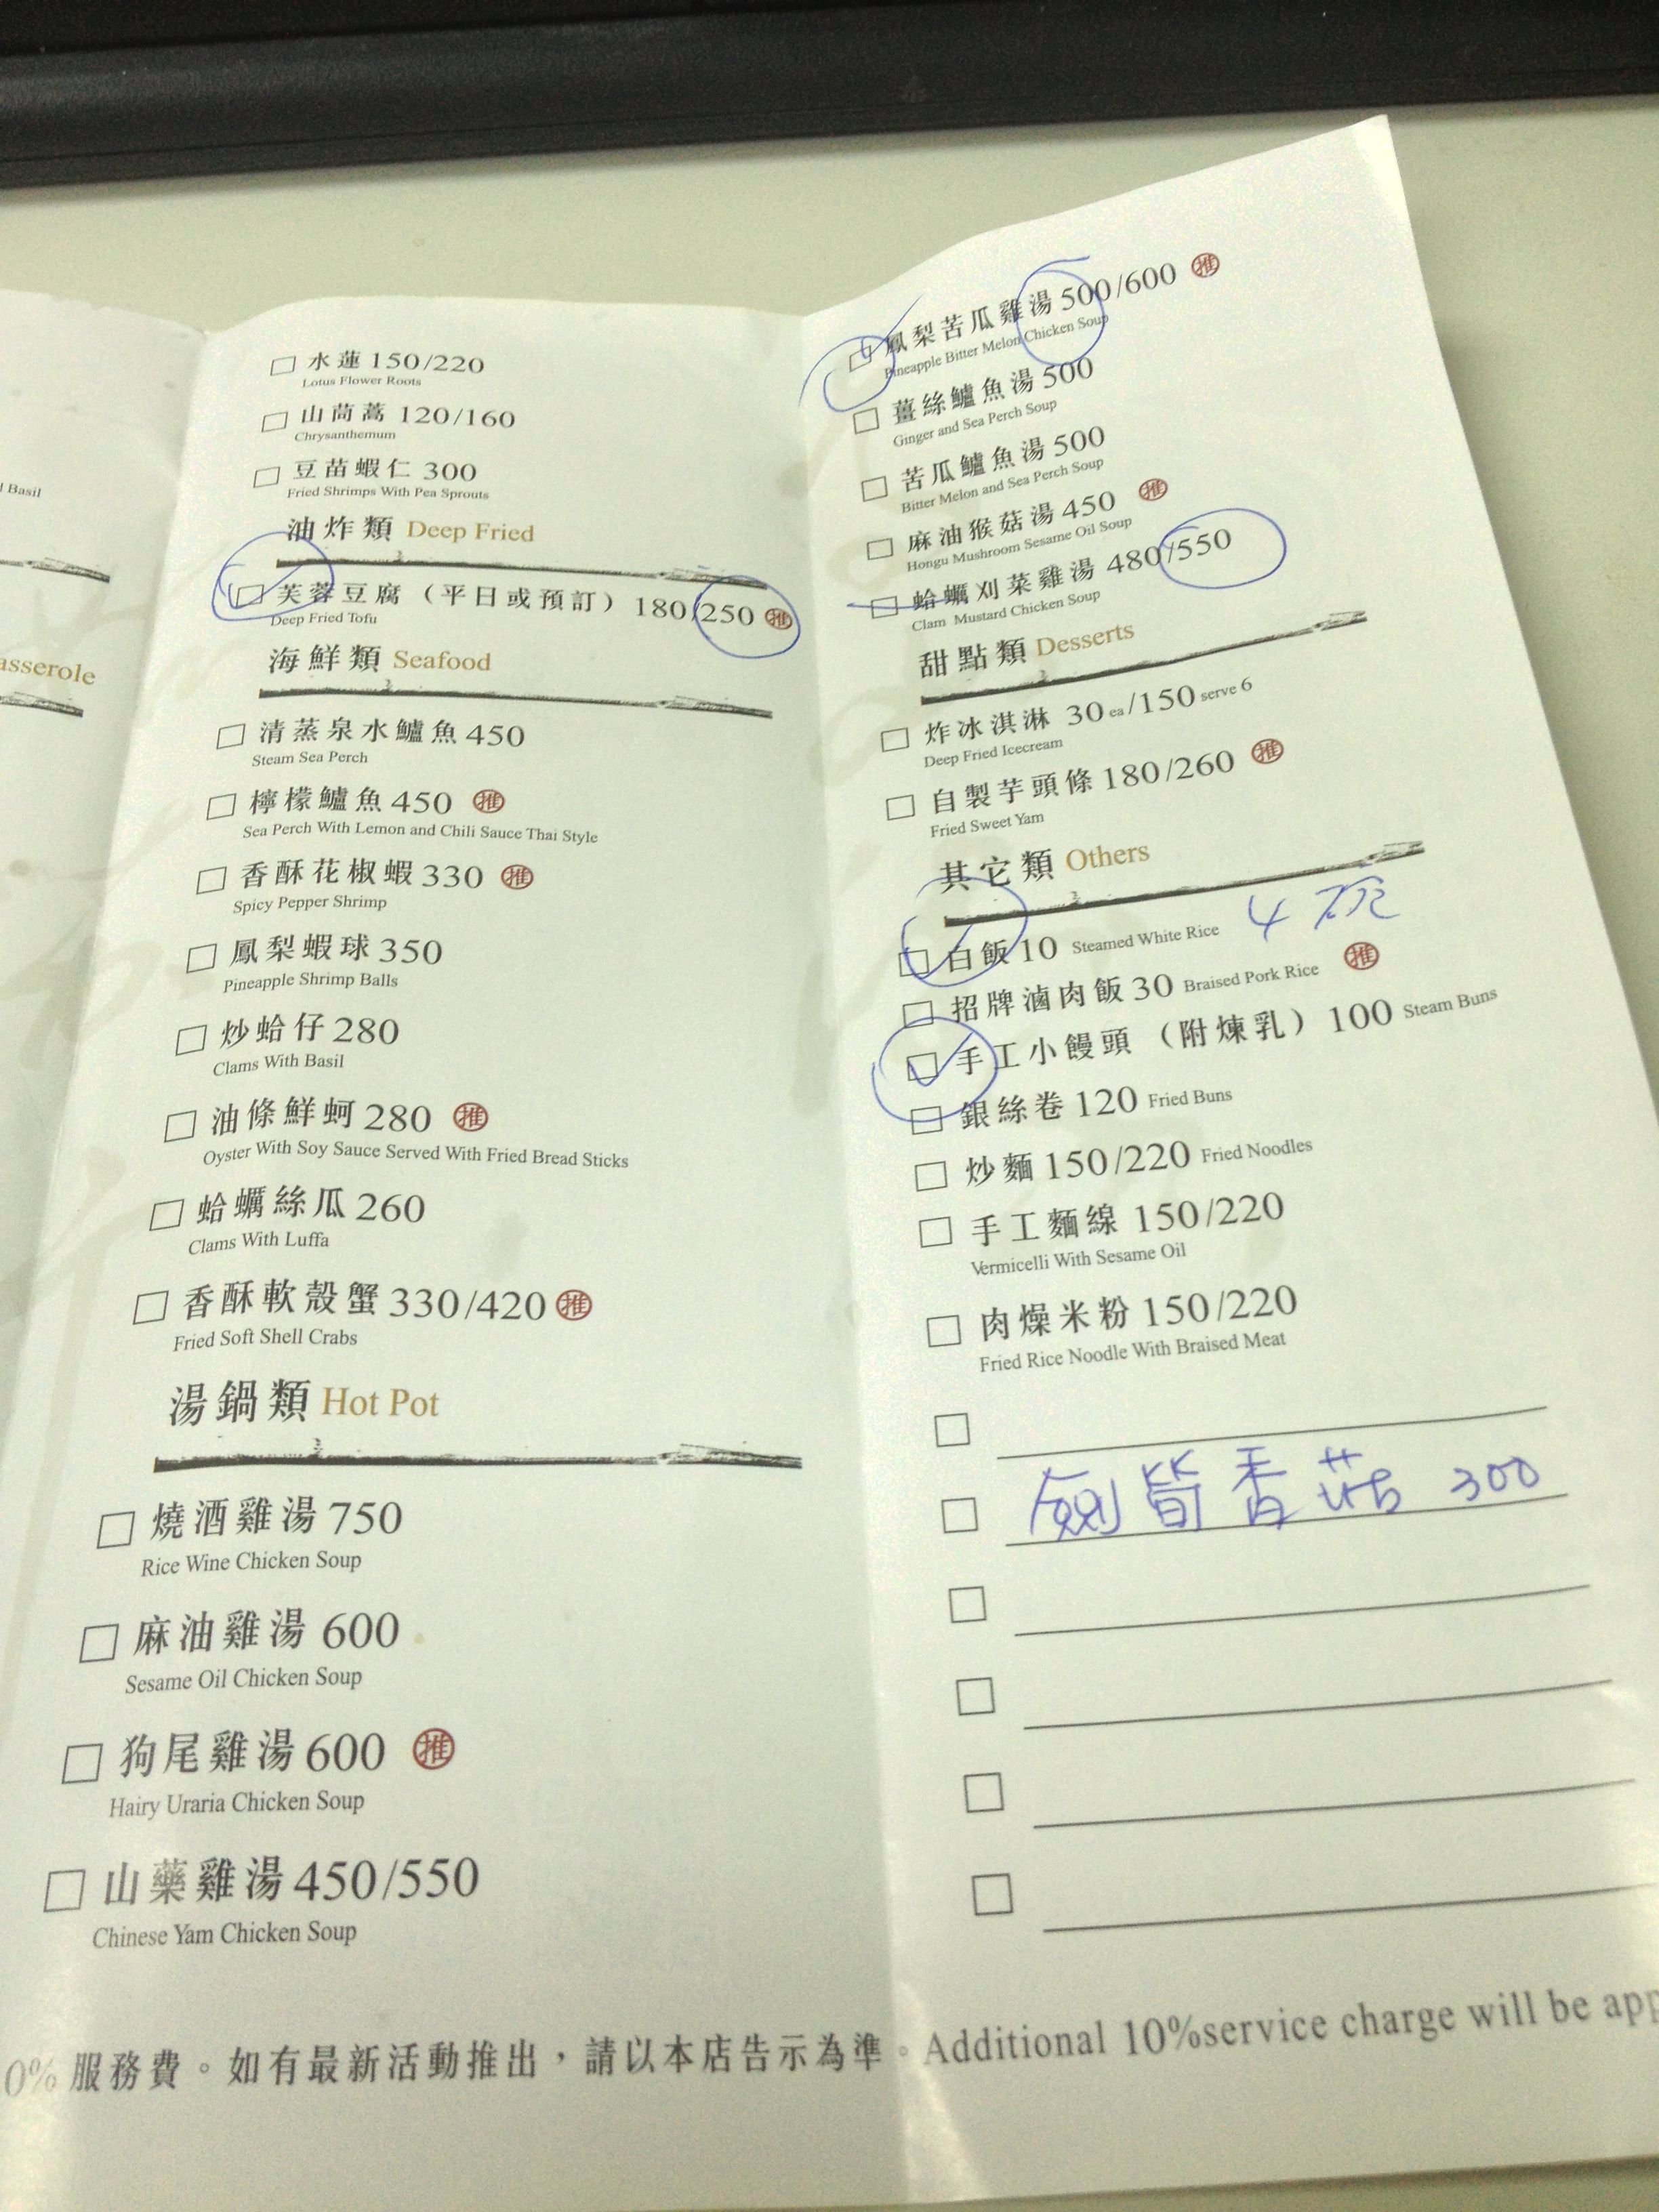 l Basil
asserole
水蓮 150/220
Lotus Flower Roots
山茼蒿 120/160
Chrysanthemum
豆苗蝦仁 300
Fried Shrimps With Pea Sprouts
油炸類 Deep Fried
芙蓉豆腐（平日或預訂）180/250 推
Deep Fried Tofu
海鮮類 Seafood
清蒸泉水鱸魚 450
Steam Sea Perch
檸檬鱸魚 450 推
Sea Perch With Lemon and Chili Sauce Thai Style
香酥花椒蝦 330 推
Spicy Pepper Shrimp
鳳梨蝦球 350
Pineapple Shrimp Balls
炒蛤仔 280
Clams With Basil
油條鮮蚵 280 推
Oyster With Soy Sauce Served With Fried Bread Sticks
蛤蠣絲瓜 260
Clams With Luffa
香酥軟殼蟹 330/420 推
Fried Soft Shell Crabs
湯鍋類 Hot Pot
燒酒雞湯 750
Rice Wine Chicken Soup
麻油雞湯 600
Sesame Oil Chicken Soup
狗尾雞湯 600 推
Hairy Uraria Chicken Soup
山藥雞湯 450/550
Chinese Yam Chicken Soup
鳳梨苦瓜雞湯 500/600 推
Pineapple Bitter Melon Chicken Soup
薑絲鱸魚湯 500
Ginger and Sea Perch Soup
苦瓜鱸魚湯 500
Bitter Melon and Sea Perch Soup
麻油猴菇湯 450 推
Hongu Mushroom Sesame Oil Soup
蛤蠣刈菜雞湯 480/550
Clam Mustard Chicken Soup
甜點類 Desserts
炸冰淇淋 30 ea/150 serve 6
Deep Fried Icecream
自製芋頭條 180/260 推
Fried Sweet Yam
其它類 Others
白飯 10 Steamed White Rice 4碗
招牌滷肉飯 30 Braised Pork Rice 推
手工小饅頭（附煉乳）100 Steam Buns
銀絲卷 120 Fried Buns
炒麵 150/220 Fried Noodles
手工麵線 150/220
Vermicelli With Sesame Oil
肉燥米粉 150/220
Fried Rice Noodle With Braised Meat
劍筍香菇 300
0% 服務費。如有最新活動推出，請以本店告示為準。Additional 10%service charge will be app